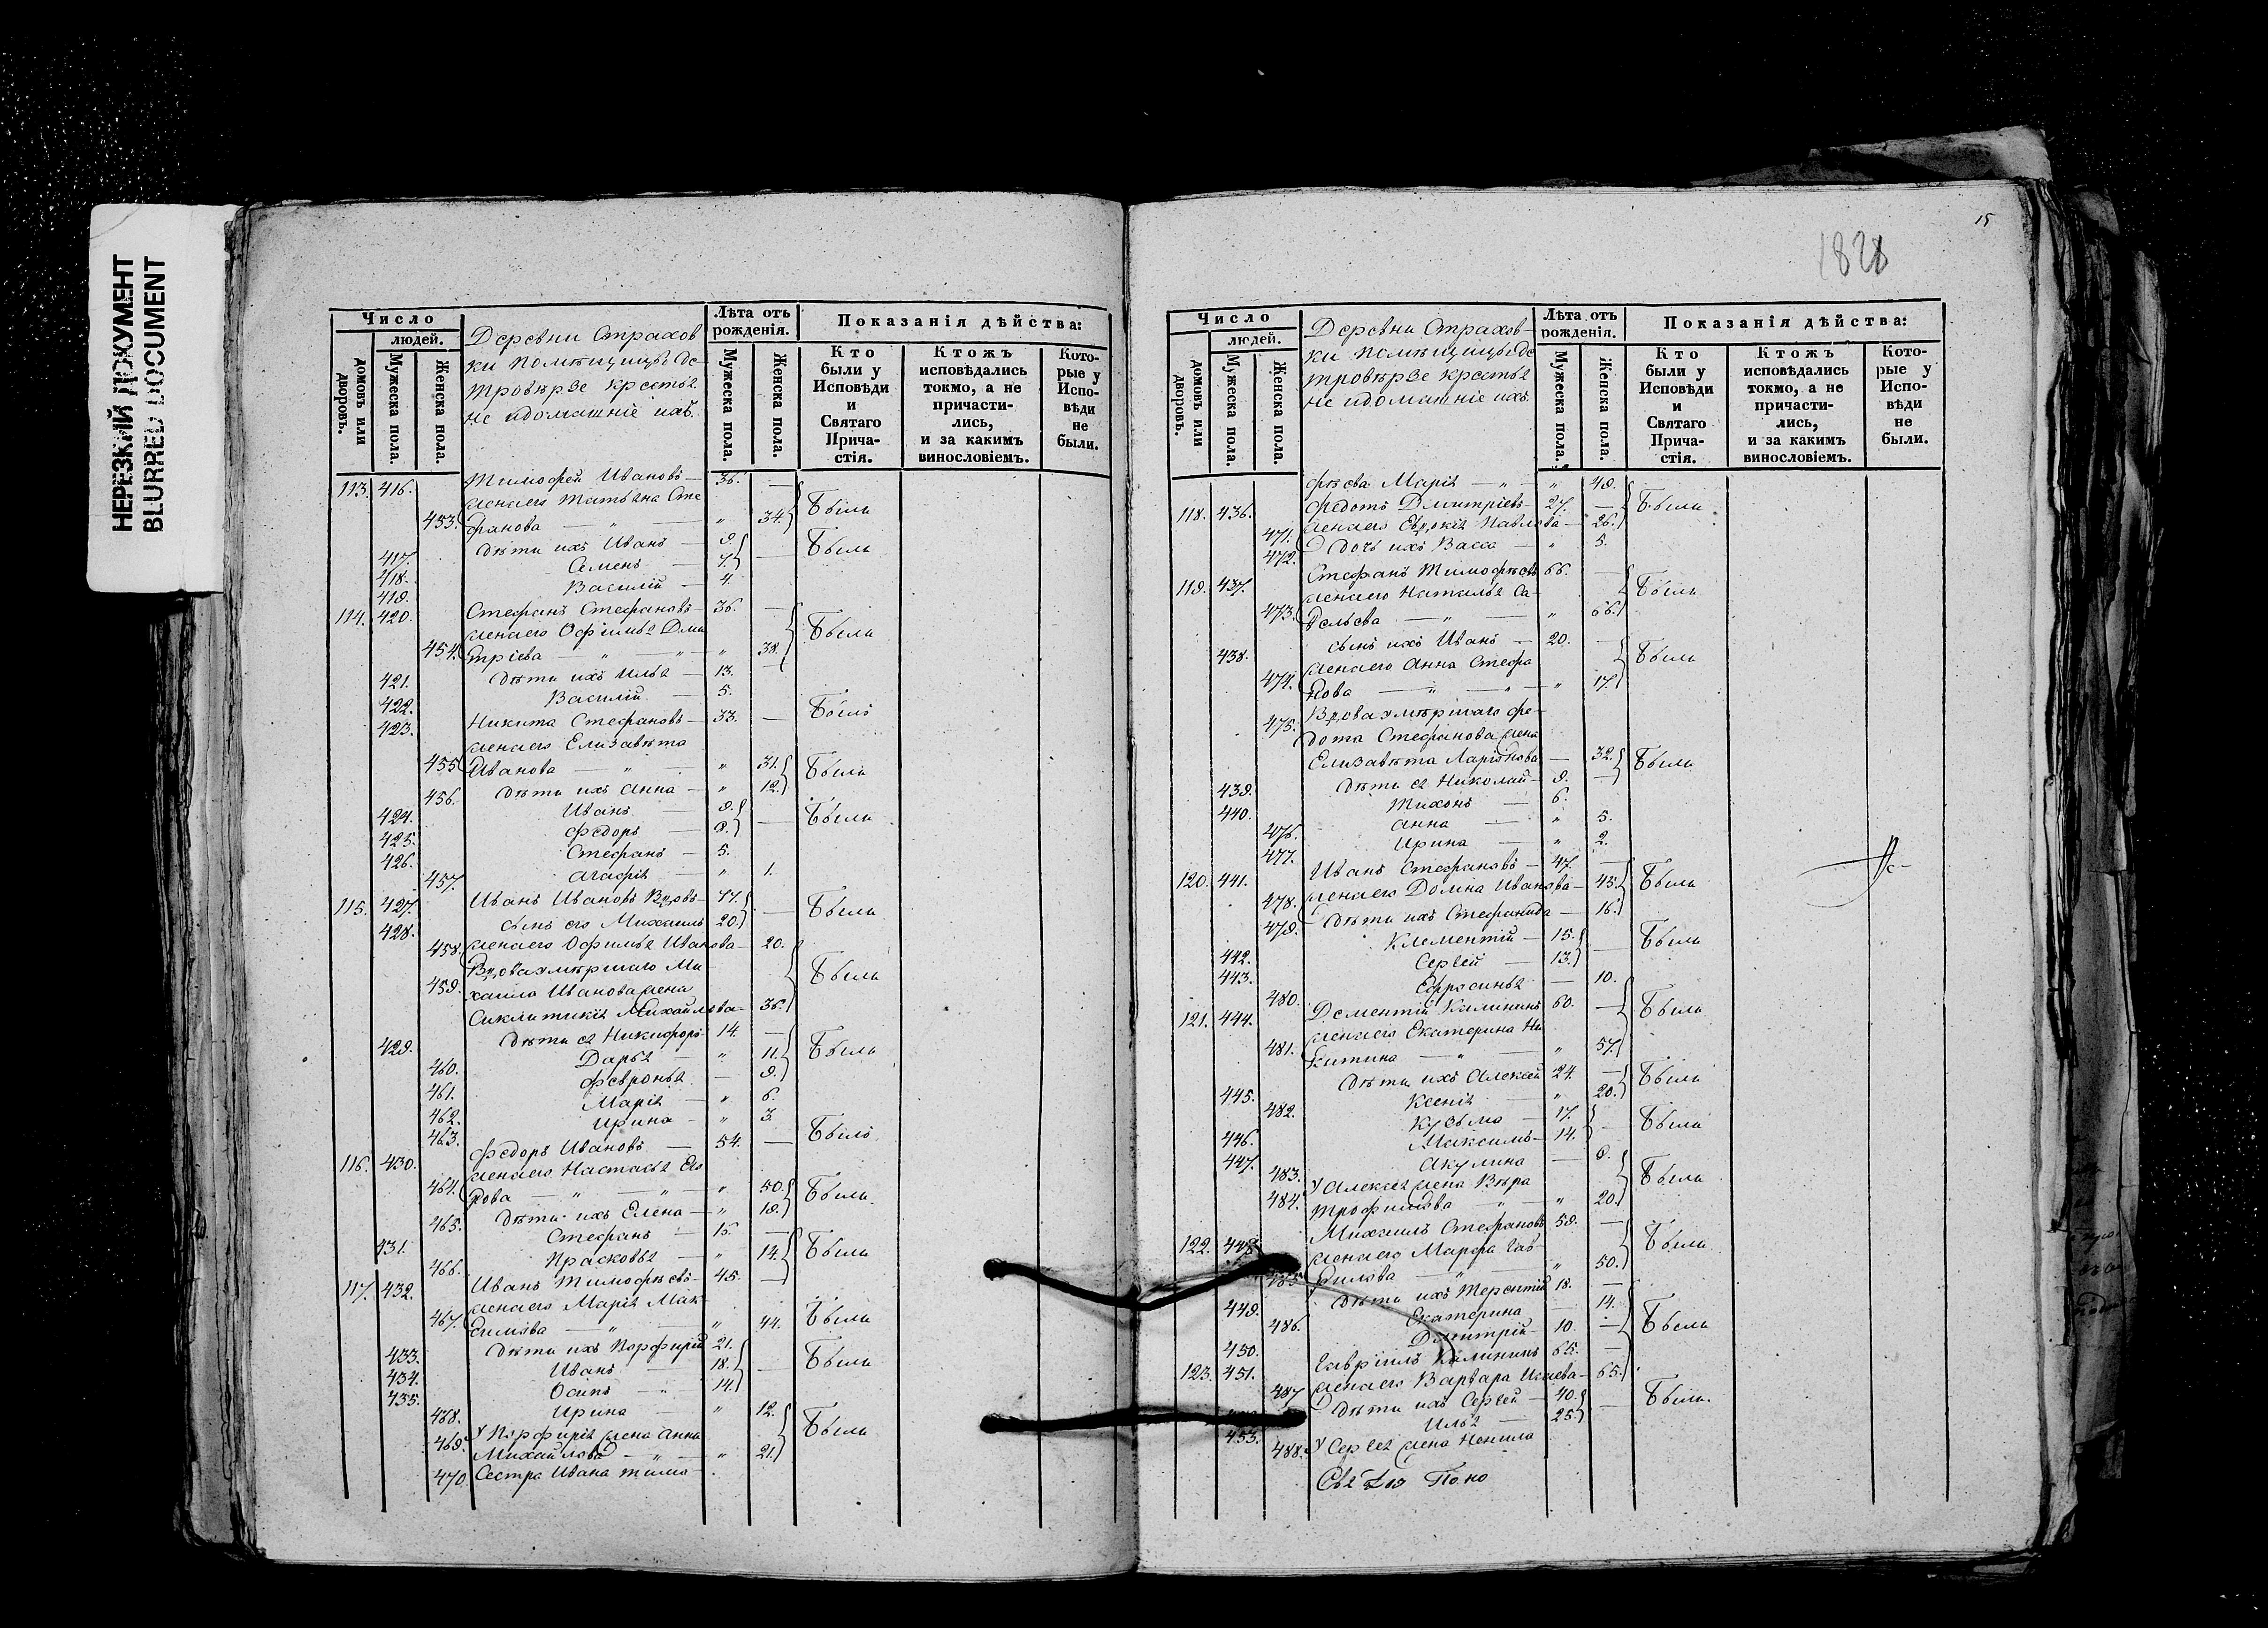 НЕРЕЗКИЙ ДОКУМЕНТ
BLURRED DOCUMENT
Число
людей.
домовъ или дворовъ.
Мужеска пола.
Женска пола.
Деревни Страхов
ки помѣщицы де-
тровѣрзе крестья
не идомашніе ихъ.
Лѣта отъ рожденія.
Мужеска пола.
Женска пола.
Показанія дѣйства:
Кто были у Исповѣди и Святаго Прича-стія.
Ктожъ исповѣдались токмо, а не причасти-лись, и за какимъ винословіемъ.
Кото-рые у Испо-вѣди не были.
113. 416. Тимофей Ивановъ — 36. —
жена его Татьяна Сте
453. фанова — " — " 34. Были
417. дѣти ихъ Иванъ — 9. — Были
418. Семенъ — 7.
419. Василій — 4.
114. 420. Стефанъ Стефановъ — 36. —
жена его Офимья Дми Были
454. тріева — " — " — " 38.
421. дѣти ихъ Илья — 13. —
422. Василій — 5.
423. Никита Стефановъ — 33. — Былъ
жена его Елизавѣта
455. Иванова — " — " 31. Были
456. дѣти ихъ Анна — " 12.
424. Иванъ 9. — Были
425. Федоръ — 8.
426. Стефанъ — 5.
457. Агафія — " 1.
115. 427. Иванъ Ивановъ Вдовъ — 71. — Были
428. сынъ его Михаилъ 20.
458. жена его Офимья Иванова — 20.
Вдова умѣршаго Ми- Были
459. хаила Иванова жена
Сиклитикія Михайлова — 36.
429. дѣти ея Никифоръ 14. —
460. Дарья — " 11. Были
461. Февронья — 9.
462. Марія — " 6.
463. Ирина — " 3.
116. 430. Федоръ Ивановъ — 54. — Былъ
жена его Настасья Его
464. рова — " — " — " 50. Были
465. дѣти ихъ Елена — " 19.
431. Стефанъ — 15. —
466. Прасковья — " 14. Были
117. 432. Иванъ Тимофѣевъ — 45. —
жена его Марія Мак-
467. симова — " — " 44. Были
433. дѣти ихъ Порфирій 21.
434. Иванъ — 18. — Были
435. Осипъ — " 14.
468. Ирина — " 12.
469. У Порфирія жена Анна Были
Михайлова — " — " 21.
470. Сестра Ивана тимо-
15
1828
Число
людей.
домовъ или дворовъ.
Мужеска пола.
Женска пола.
Деревни Страхов-
ки помѣщицы де
тровѣрзе крестья
не идомашніе ихъ
Лѣта отъ рожденія.
Мужеска пола.
Женска пола.
Показанія дѣйства:
Кто были у Исповѣди и Святаго Прича-стія.
Ктожъ исповѣдались токмо, а не причасти-лись, и за какимъ винословіемъ.
Кото-рые у Испо-вѣди не были.
фѣева Марія — " — " 49.
118. 436. Федотъ Дмитріевъ — 27. — Были
471. жена его Евдокія Павлова — 26.
472. дочь ихъ Васса — " 5.
119. 437. Стефанъ Тимофѣевъ 66. —
жена его Наталья Са- Были
473. вельева — " — " 66.
438. сынъ ихъ Иванъ — 20. —
жена его Анна Стефа Были
474. нова — " — " — " 17.
475. Вдова умѣршаго Фе-
дота Стефанова жена
Елизавѣта Ларіонова — 32. Были
439. дѣти ея Николай — 9. —
440. Тихонъ — 6.
476. Анна — " 5.
477. Ирина — " 2.
120. 441. Иванъ Стефановъ — 47. —
478. жена его Домна Иванова — 45. Были
479. дѣти ихъ Стефанида — 16.
442. Клементій — 15. — Были
443. Сергей — 13.
480. Ефросинья — 10.
121. 444. Дементій Калининъ 60. — Были
жена его Екатерина Ни
481. китина — " — " 57.
445. дѣти ихъ Алексей 24. — Были
482. Ксенія — " 20.
446. Кузьма — 17. — Были
447. Максимъ — 14.
483. Акулина — 8.
484. У Алексея жена Вѣра Были
Трофимова — " — " 20.
122. 448. Михаилъ Стефановъ 59. —
жена его Марфа Гав- Были
485. рилова — " — " 50.
449. дѣти ихъ Терентій 18. —
486. Екатерина — 14. Были
450. Дмитрій — 10. —
123. 451. Гавріилъ Калининъ 65. —
487. жена его Варвара Исаева — 65.
дѣти ихъ Сергей — 40. — Были
453. Илья — 25.
488. У Сергея жена Ненила